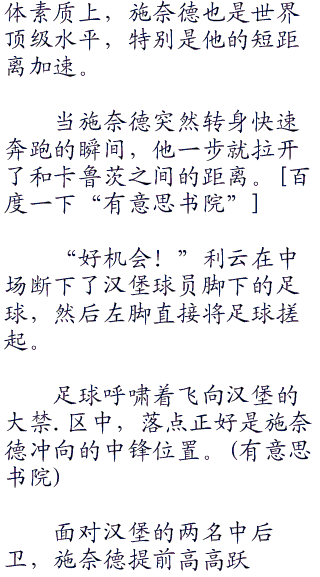 体素质上，施奈德也是世界
顶级水平，特别是他的短距
离加速。
当施奈德突然转身快速
奔跑的瞬间，他一步就拉开
了和卡鲁茨之间的距离。[百
度一下“有意思书院”]
“好机会！”利云在中
场断下了汉堡球员脚下的足
球，然后左脚直接将足球搓
起。
足球呼啸着飞向汉堡的
大禁.区中，落点正好是施奈
德冲向的中锋位置。(有意思
书院)
面对汉堡的两名中后
卫，施奈德提前高高跃